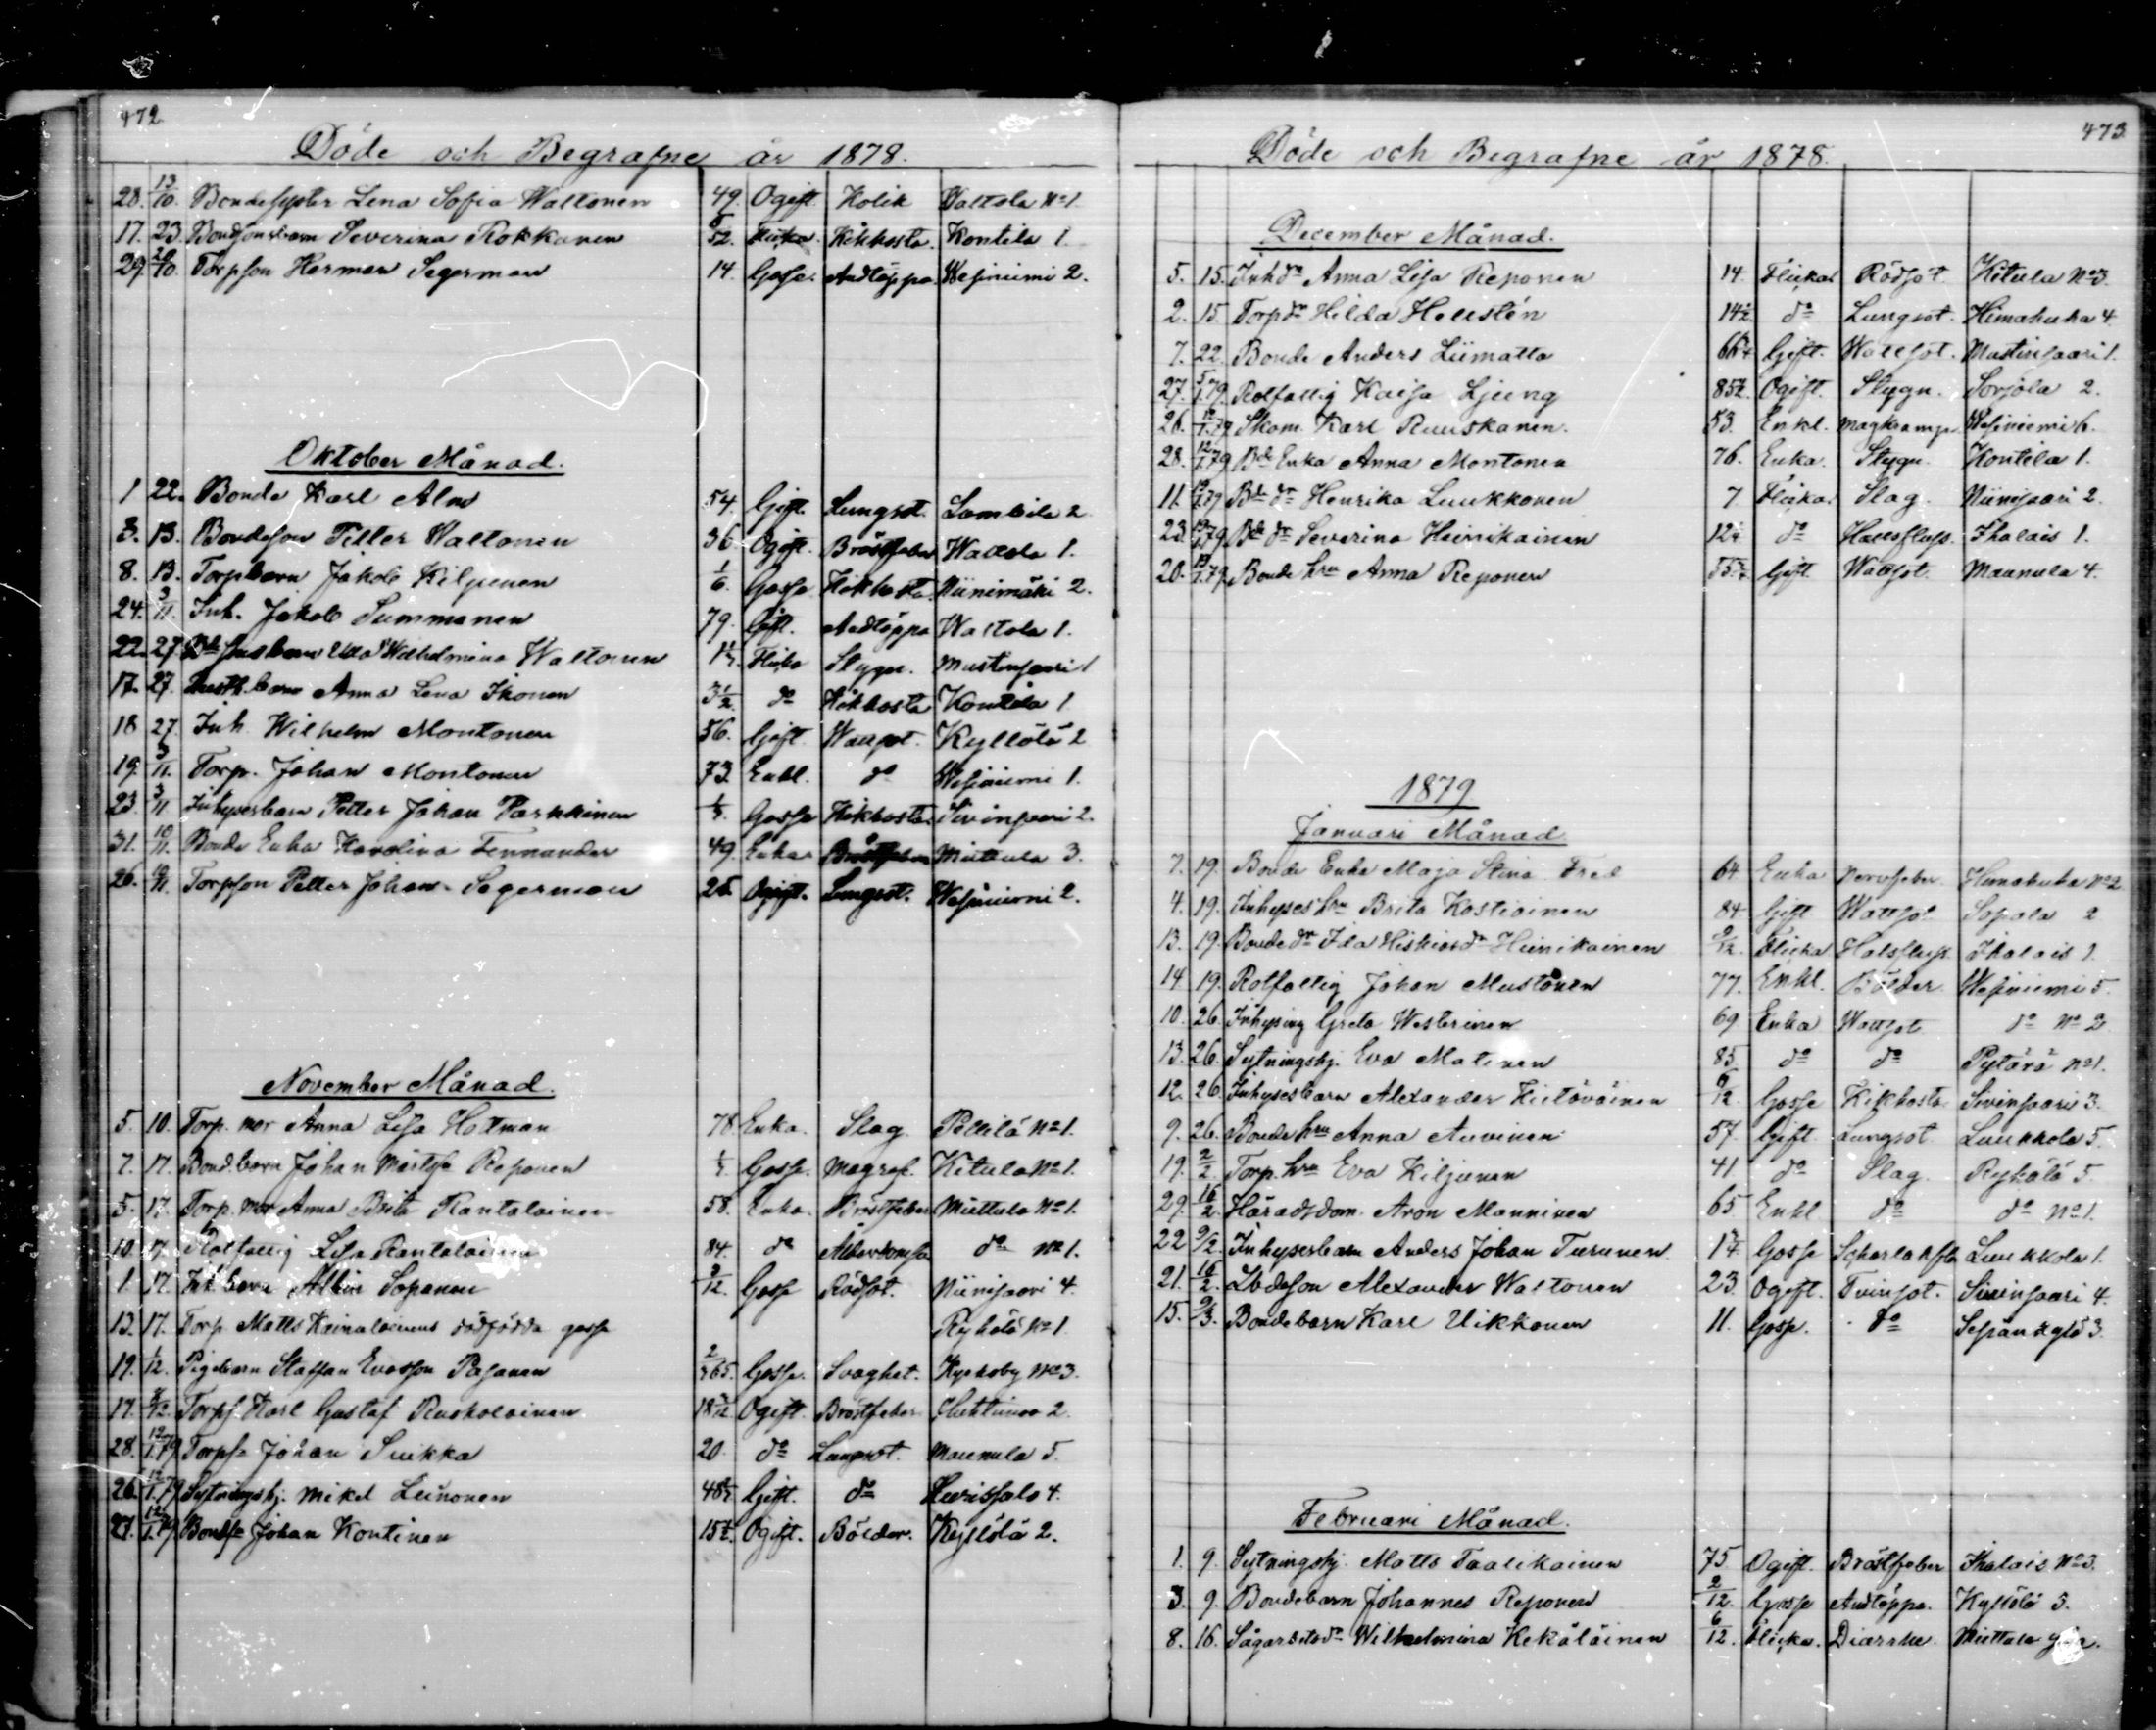 472
Döde och Begrafne år 1878.
28. 13/10. Bondesyster Lena Sofia Waltonen 49. Ogift. Kolik Wattola No 1.
17. 23. Bondsonsbarn Severina Rokkanen 5/52. Flicka. Kikhosta. Kontila 1.
29. 20/10. Torpson Herman Segerman 14. Gosse. Andtäppa Wesiniemi 2.
Oktober Månad.
1 22. Bonde Karl Alm 54. Gift. Lungsot. Lambila 2
3. 13. Bondeson Petter Waltonen 36 Ogift. Bröstfeber Wattola 1.
8. 13. Torpbarn Jakob Kilpenen 1/6. Gosse Kikhosta. Niinimäki 2.
24. 3/11. Inh. Jakob Summanen 79. Gift. Andtäppa Wattola 1.
22. 27. Wilhelmina Waltonen Flicka Stygn. Mustinsaari 1
17. 27. barn Anna Lena Ikonen 3 1/2. do Kikhosta Kontila 1
18 27. Inh. Wilhelm Montonen 56. Gift. Wattsot. Kyllölä 2
19. 3/11. Torp. Johan Montonen 73. Enkl. do Wesiniemi 1.
23. 3/11 Inhysesbarn Petter Johan Parkkinen Gosse Kikhosta Sirinsaari 2.
31. 10/11. Bonde Enka Karolina Fennander 49. Enka Bröstfeber Miettula 3.
26. 10/11. Torpson Petter Johan Segerman 25. Ogift. Lungsot. Wesiniemi 2.
November Månad.
5. 10. Torp. mor Anna Lisa Hotman 78 Enka. Slag Pellilä No 1.
7. 17. Bond.barn Johan Reponen Gosse. Kitula No 1.
5. 17. Torp. mor Anna Brita Rantalainen 58. Enka. Bröstfeber Miettula No 1.
10. 17. Rotfattig Lisa Rantalainen 84. do Ålderdomsv. do No 1.
1. 17. Inh. barn Albin Sopanen 2/12. Gosse Rödsot. Niinisaari 4.
13. 17. Torp. Matts Kainalainens dödfödda gosse Ryhälä No 1.
19. 1/12. Pigobarn Staffan Evasson Pasanen 2/365. Gosse. Svaghet. Kyrkoby No 3.
17. Torps. Karl Gustaf Ruokolainen 18 Ogift. Bröstfeber 2.
28. 12/1.79 Torps. Johan Suikka 20. do Lungsot. Maunula 5.
26. 12/1.79 Sytningshj. Mikel Leinonen 48 Gift. do Hurissalo 4.
27. 12/1.79 Bonds. Johan Kontinen 15 1/2. Ogift. Bölder. Kyllölä 2.
473.
Döde och Begrafne år 1878.
December Månad.
5. 15. Inh do Anna Lisa Reponen 14. Flicka Rödsot Kitula No 3.
2. 15. Torp do Hilda Hellstén 14 1/2 do Lungsot. Himahuha 4.
7. 22. Bonde Anders Liimatta 66 Gift. Wattsot. Mustinsaari 1.
27. 5/1.79. Rotfattig Kaisa Ljung 85 1/2. Ogift. Stygn. Sorjola 2.
26. 12/1.79 Skom. Karl Ruuskanen. 53. Enkl. Magkramp. Wesiniemi 6.
28. 12/1.79 Bde Enka Anna Montonen 76. Enka. Stygn. Kontila 1.
11. 12/1.79 Bde do Henrika Luukkonen 7 Flicka. Slag. Niinisaari 2.
23. 19/1.79 Bde do Severina Heinikainen 12 do Halsfluss. Ihalais 1.
20. 19/1.79. Bonde hru Anna Reponen 55 Gift. Wattsot. Maunula 4.
1879
Januari Månad
7. 19. Bonde Enka Maja Stina Fred 64 Enka Nervfeber Himahuha No 2
4. 19. Inhyses hru Brita Kostiainen 84 Gift Wattsot Sopala 2
13. 19. Bonde dr Ida Hiskiasdr Heinikainen 9/12. Flicka Halsfluss. Ihalais 1.
14 19. Rotfattig Johan Mustonen 77. Enkl. Bölder. Wesiniemi 5.
10. 26. Inhysing Greta Westerinen 69 Enka Wattsot do No 2
13. 26. Sytningshj. Eva Matinen 85 do do Pistärä No 1.
12. 26. Inhysesbarn Alexander Kietäväinen 6/12 Gosse Kikhosta Sivinsaari 3.
9. 26. Bonde hru Anna Auvinen 57. Gift. Lungsot. Luukkola 5.
19. 2/2. Torp. hru Eva Kiljunen 41 do Slag. Ryhälä 5.
29. 16/2. Häradsdom. Aron Manninen 65 Enkl do do No 1.
22 9/2. Inhysesbarn Anders Johan Turunen 1 3/4 Gosse Scharlakfb Luukkola 1.
21. 16/2. Ldeson Alexander Waltonen 23. Ogift. Tvinsot. Sivinsaari 4.
15. 9/3. Bondebarn Karl Ukkonen 11. Gosse. do Sepänkylä 3.
Februari Månad.
1. 9. Sytningshj. Matts Taalikainen 75 Ogift. Bröstfeber Ihalais No 3.
3. 9. Bondebarn Johannes Reponen 2/12. Gosse Andtäppa. Kyllölä 5.
8. 16. Sågarbets do Wilhelmina Kekäläinen 6/12. Flicka. Diarrhe. Miettula